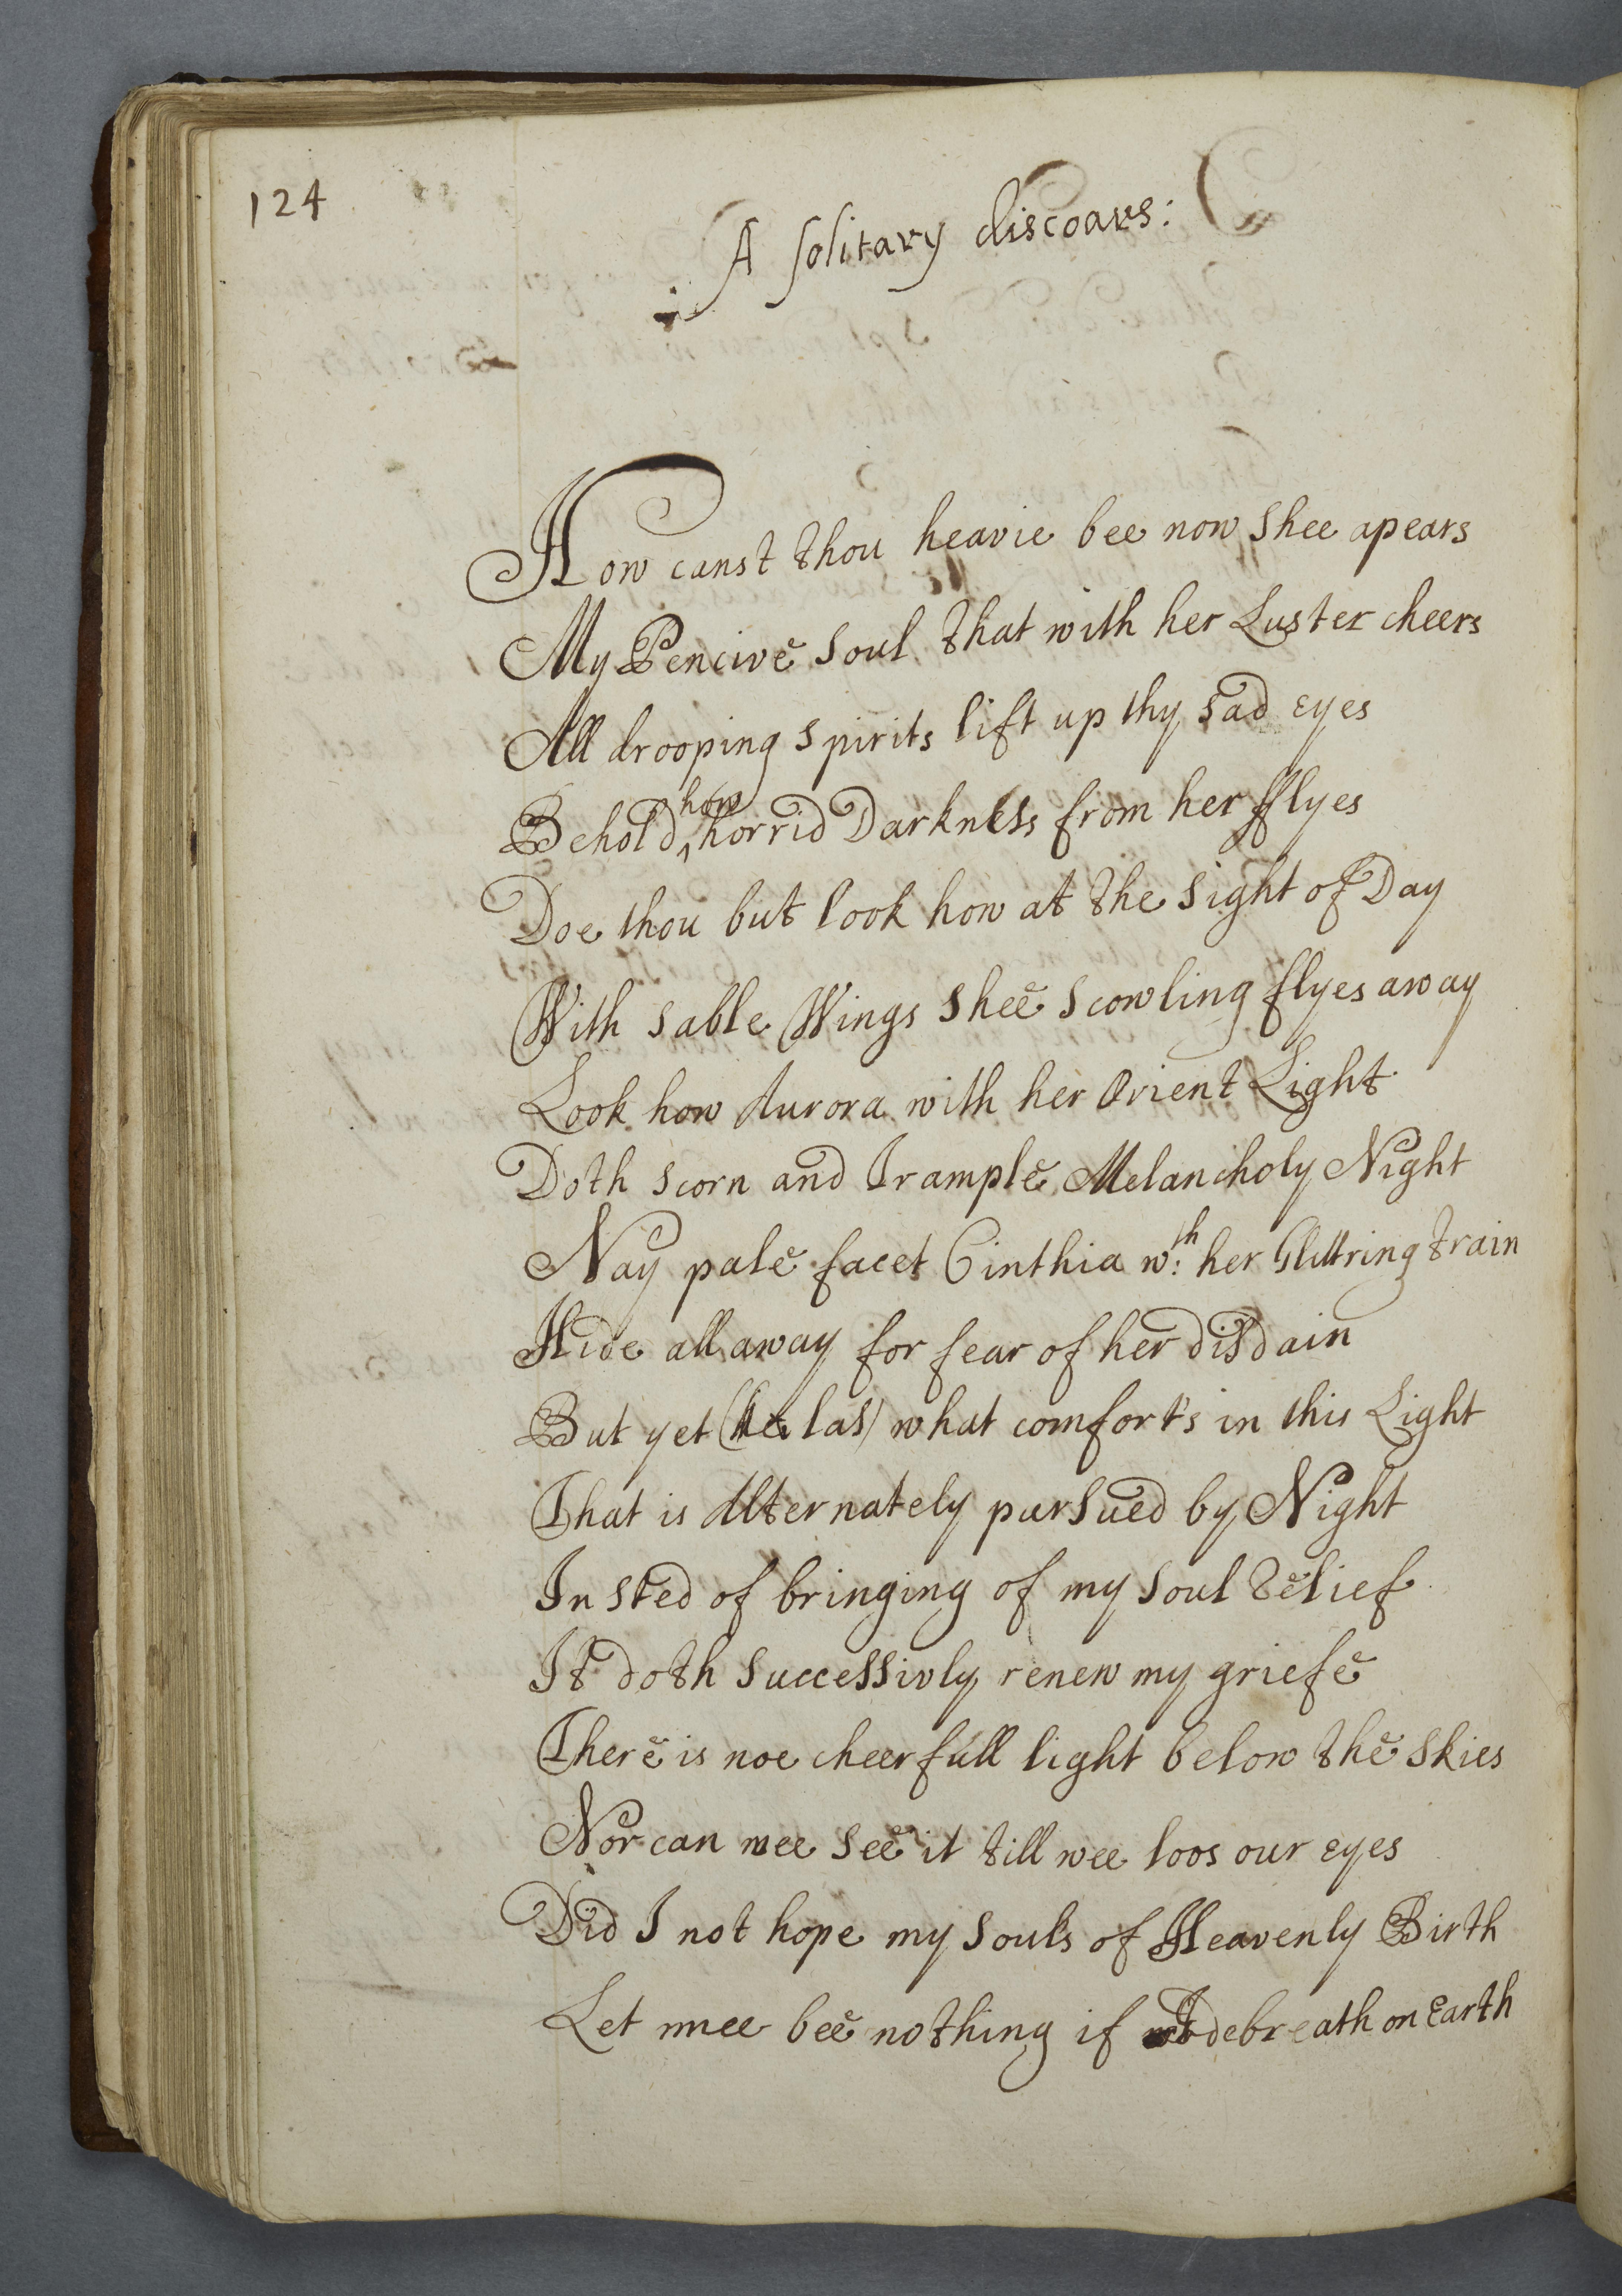 124
A solitary discoars:
How canst thou heavie bee now shee apears
My Pencive soul that with her Luster cheers
All drooping spirits lift up thy sad eyes
Behold ^how horrid Darkness from her fflyes
Doe thou but look how at the sight of Day
With sable Wings shee scowling flyes away
Look how Aurora with her Orient Light
Doth scorn and Trample Melancholy Night
Nay pale facet Cinthia wth: her Glittring train
Hide all away for fear of her disdain
But yet (Alas) what comfort's in this Light
That is Alternately pursued by Night
In sted of bringing of my soul Relief
It doth successivly renew my griefe
There is noe cheerfull light below the skies
Nor can wee see it till wee loos our eyes
Did I not hope my soul's of Heavenly Birth
Let mee bee nothing if I debreath on Earth